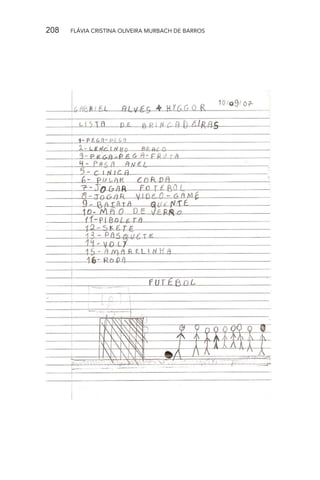 208 FLÁVIA CRISTINA OLIVEIRA MURBACH DE BARROS
10/09/07
GABRIEL ALVES + HYGGOR
LISTA DE BRINCADEIRAS
1-PEGA-PEGA
2-LENCINHO BRACO
3-PEGA-PEGA-FRUTA
4- PASA ANEL
5- CINICA
6- PULAR CORDA
7-JOGAR FOTEBOL
8-JOGAR VIDEO-GAME
9- BATATA QUENTE
10- MÃO DE VERRO
11-PIBOLETA
12-SKETE
13- PASQUETE
14-VOLY
15-AMARELINHA
16-RODA
FUTEBOL